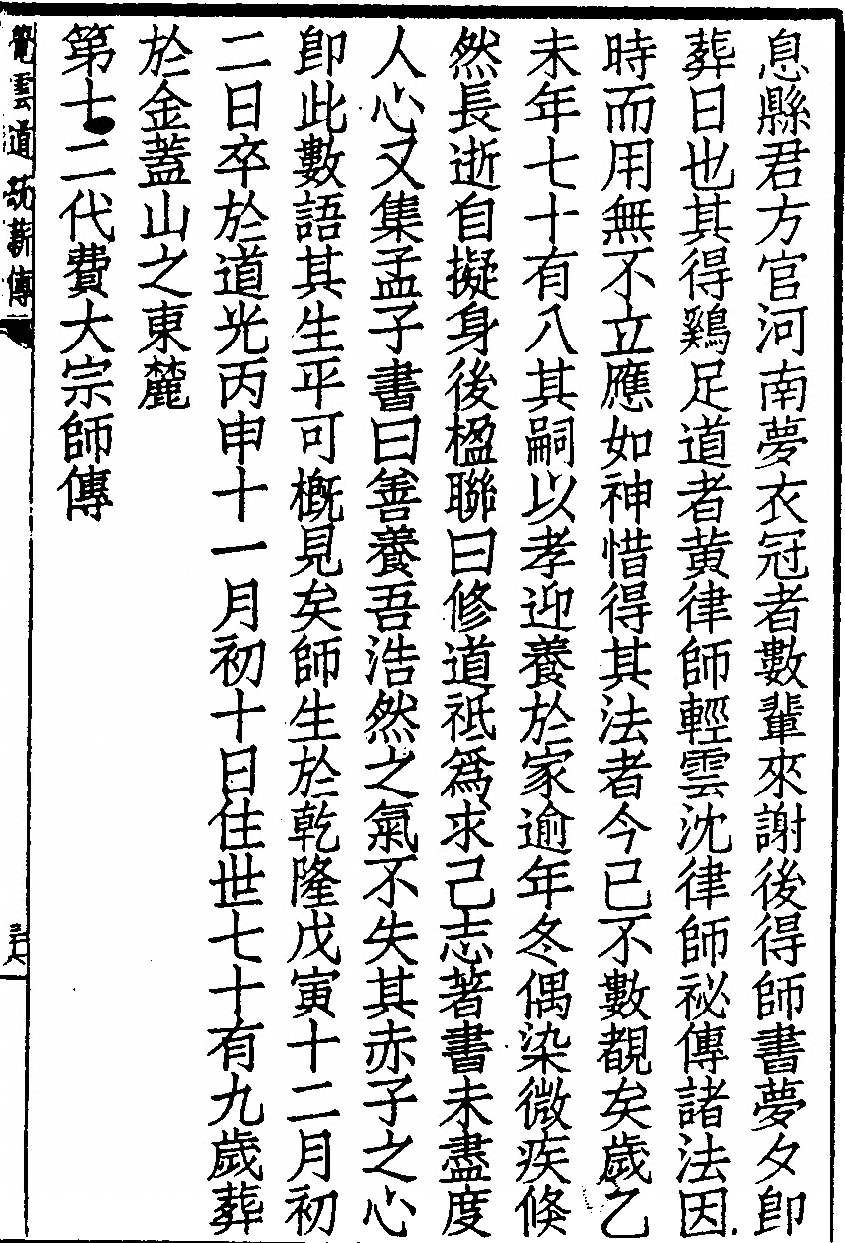 息縣君方官河南夢衣冠者數輩來謝後得師書夢夕卽
葬日也其得鷄足道者黄律師輕雲沈律師祕傳諸法因
時而用無不立應如神惜得其法者今已不數覩矣歲乙
未年七十有八其嗣以孝迎養於家逾年冬偶染微疾倏
然長逝自擬身後楹聯曰修道祗爲求己志著書未盡度
人心又集孟子書曰善養吾浩然之氣不失其赤子之心
卽此數語其生平可槪見矣師生於乾隆戊寅十二月初
二日卒於道光丙申十一月初十日住世七十有九歲葬
於金蓋山之東麓
第十二代費大宗師傳
覺雲道統薪傳
三六